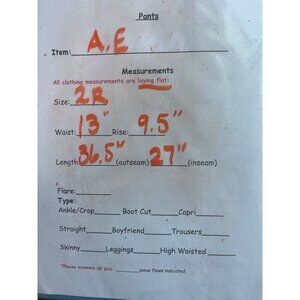 Pants
Item: A.E
Measurements
All clothing measurements are laying flat:
Size: 2R
Waist: 13" Rise: 9.5"
Length: 36.5" (outseam) 27" (inseam)
Flare:
Type:
Ankle/Crop Boot Cut Capri
Straight Boyfriend Trousers
Skinny Leggings High Waisted
*Please examine all pics some flaws indicated